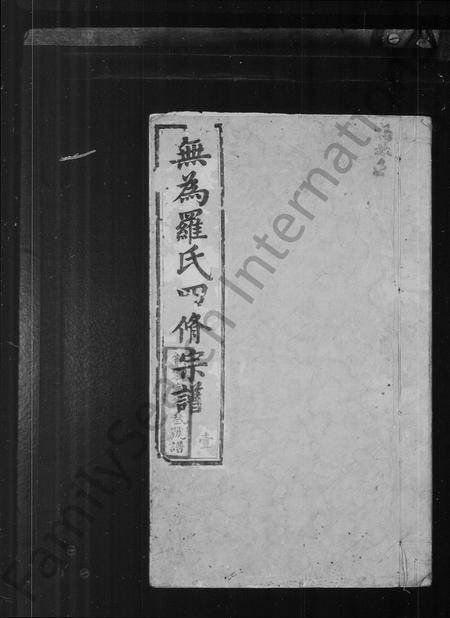 無為羅氏四脩宗譜
叁號譜
壹
FamilySearch International